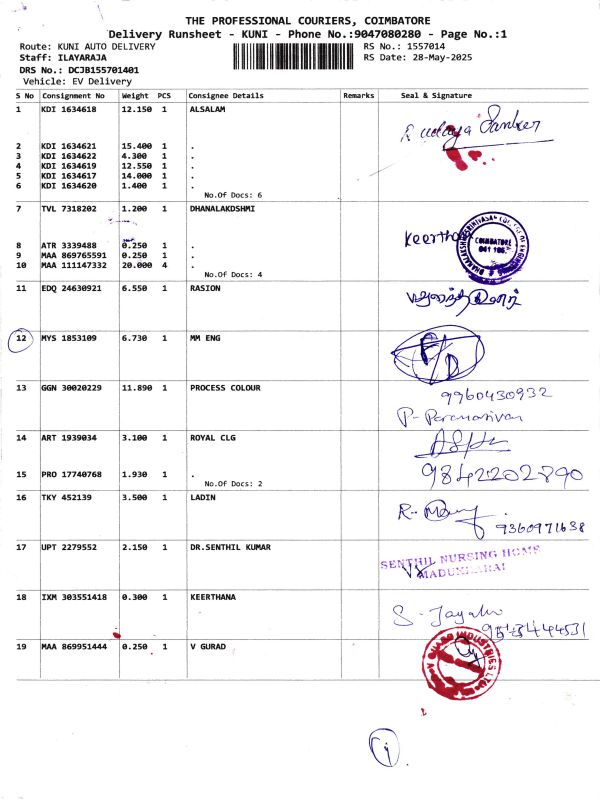 THE PROFESSIONAL COURIERS, COIMBATORE
Delivery Runsheet - KUNI - Phone No.:9047080280 - Page No.:1
Route: KUNI AUTO DELIVERY RS No.: 1557014
Staff: ILAYARAJA RS Date: 28-May-2025
DRS No.: DCJB155701401
Vehicle: EV Delivery
S No Consignment No Weight PCS Consignee Details Remarks Seal & Signature
1 KDI 1634618 12.150 1 ALSALAM
2 KDI 1634621 15.400 1 .
3 KDI 1634622 4.300 1 .
4 KDI 1634619 12.550 1 .
5 KDI 1634617 14.000 1 .
6 KDI 1634620 1.400 1 .
No.Of Docs: 6
7 TVL 7318202 1.200 1 DHANALAKDSHMI
Keerthana
COIMBATORE
8 ATR 3339488 0.250 1 .
9 MAA 869765591 0.250 1 .
10 MAA 111147332 20.000 4 .
No.Of Docs: 4
11 EDQ 24630921 6.550 1 RASION
12 MYS 1853109 6.730 1 MM ENG
13 GGN 30020229 11.890 1 PROCESS COLOUR
9960430932
14 ART 1939034 3.100 1 ROYAL CLG
15 PRO 17740768 1.930 1 .
9842202890
No.Of Docs: 2
16 TKY 452139 3.500 1 LADIN
9360971638
17 UPT 2279552 2.150 1 DR.SENTHIL KUMAR
SENTHIL NURSING HOME
18 IXM 303551418 0.300 1 KEERTHANA
19 MAA 869951444 0.250 1 V GURAD